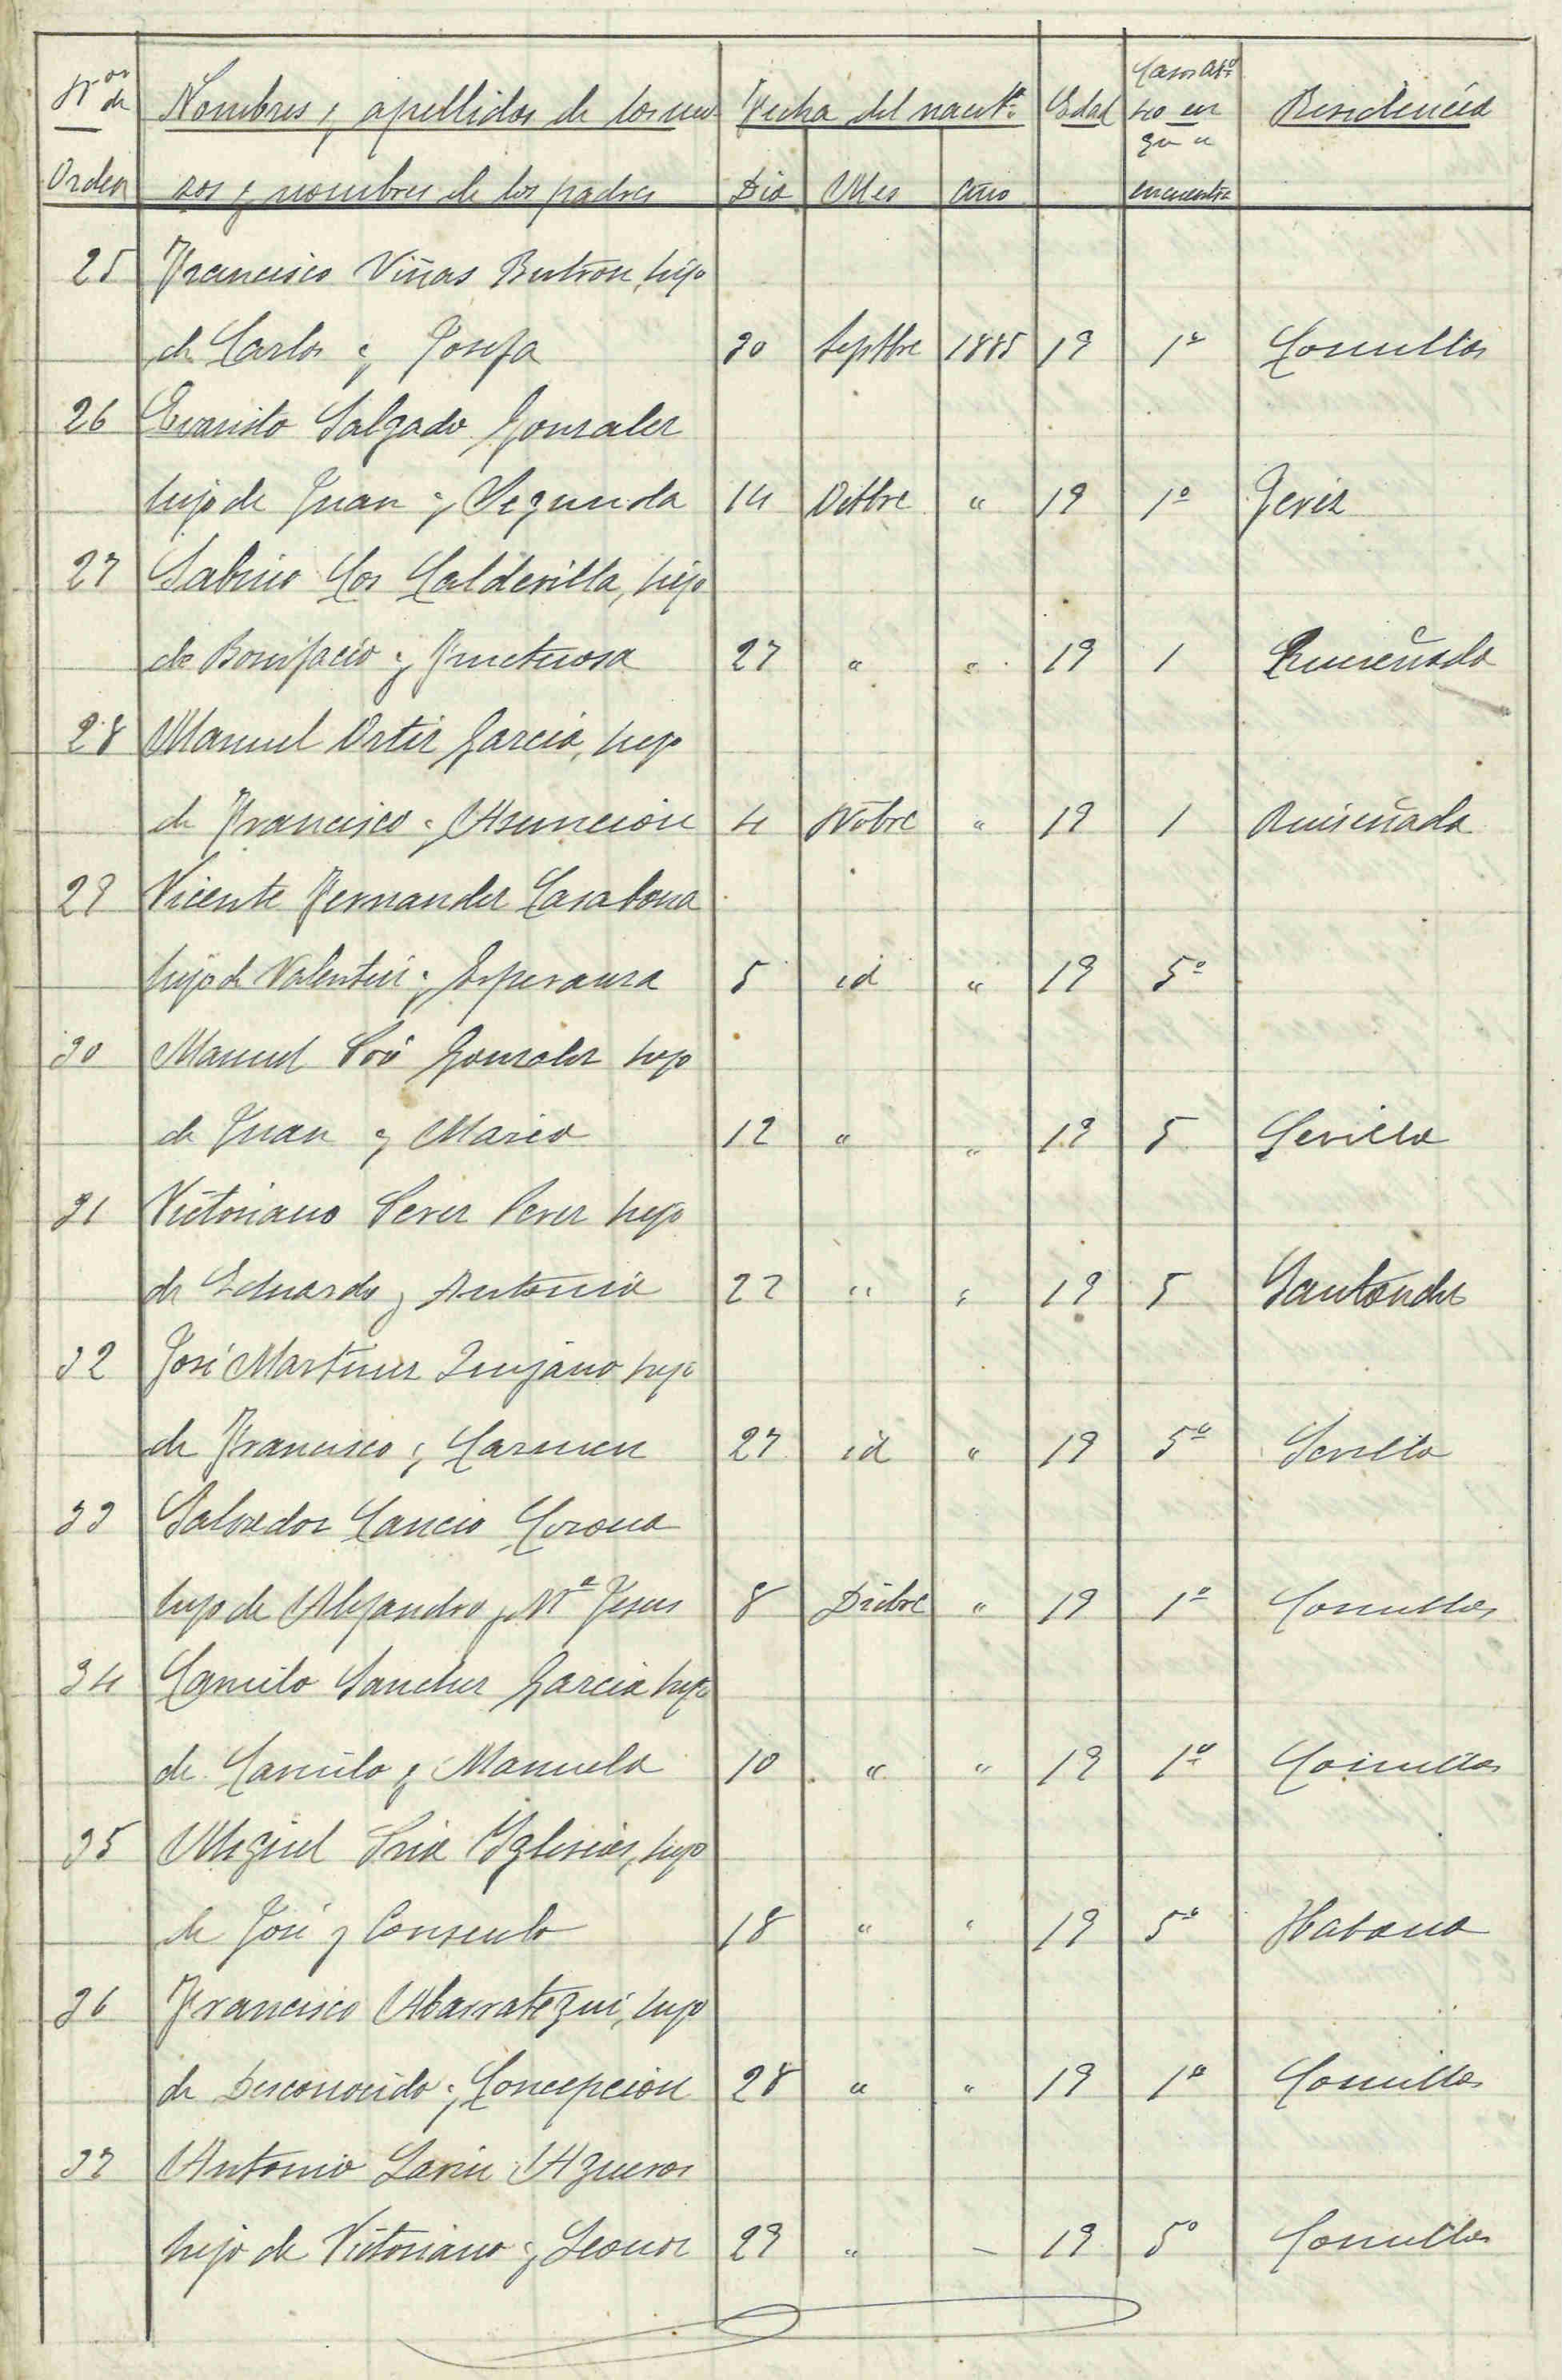 Nos de Nombres y apellidos de los mo- Fecha del nacmto. Edad Caso Arto 40 en que se Residencia
Orden zos y nombres de los padres Dia Mes Año encuentra
25 Francisco Viñas Butron, hijo
de Carlos y Josefa 30 Septbre 1885 19 1º Comillas
26 Evaristo Salgado Gonzalez
hijo de Juan y Segunda 14 Octbre " 19 1º Jeréz
27 Sabino Cos Calderilla, hijo
de Bonifacio y Fructuosa 27 " " 19 1 Ruiseñada
28 Manuel Ortiz Garcia, hijo
de Francisco y Asuncion 4 Nobre " 19 1 Ruiseñada
29 Vicente Fernandez Casabona
hijo de Valentin y Esperanza 5 id " 19 5º
30 Manuel Gonzalez hijo
de Juan y Maria 12 " " 19 5 Sevilla
31 Victoriano Perez Perez hijo
de Eduardo y Antonia 22 " " 19 5 Santander
32 José Martinez Quijano hijo
de Francisco y Carmen 27 id " 19 5º Sevilla
33 Salvador Cancio Corona
hijo de Alejandro y Mª Jesus 8 Dicbre " 19 1º Comillas
34 Camilo Sanchez Garcia hijo
de Camilo y Manuela 10 " " 19 1º Comillas
35 Miguel Iglesias, hijo
de José y Consuelo 18 " " 19 5º Habana
36 Francisco Abarrategui, hijo
de Desconocido y Concepcion 28 " " 19 1º Comillas
37 Antonio Lavin Agueros
hijo de Victoriano y Leonor 29 " - 19 5º Comillas